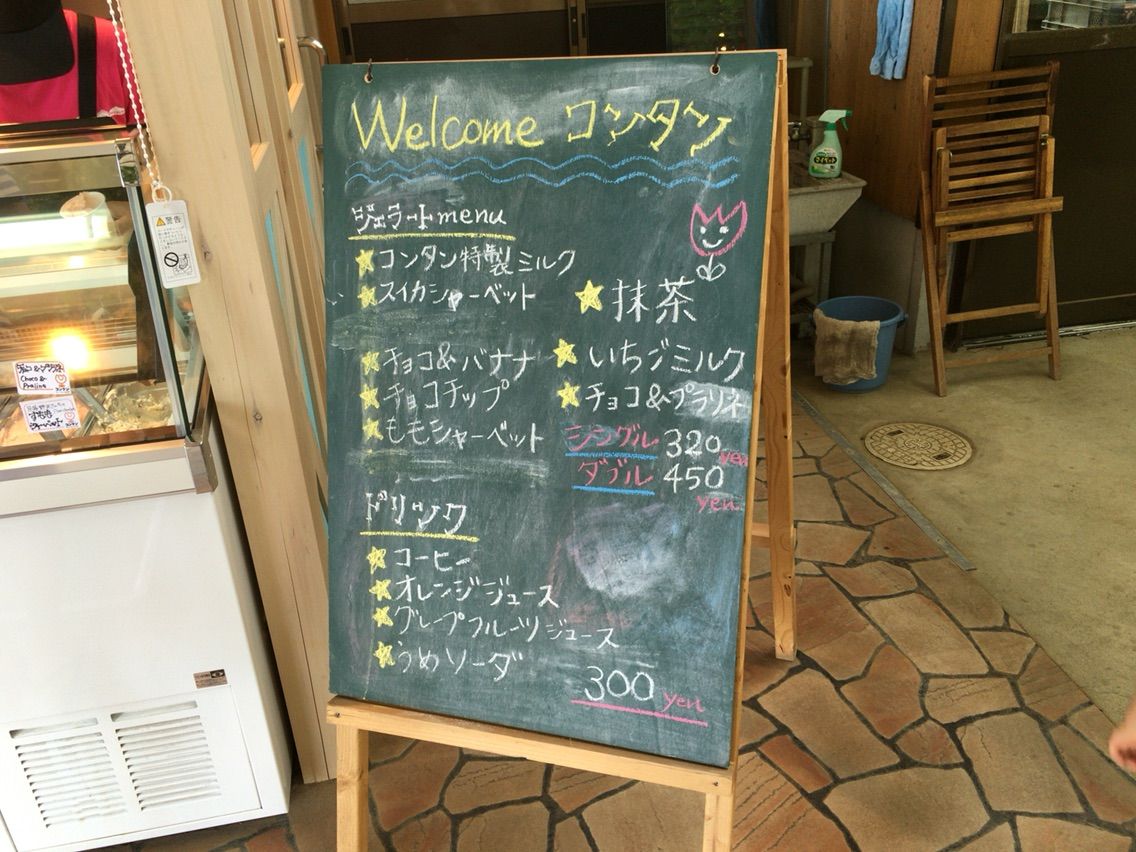 Welcome コンタン
ジェラートmenu
コンタン特製ミルク
スイカシャーベット
チョコ&バナナ
チョコチップ
ももシャーベット
抹茶
いちごミルク
チョコ&プラリネ
シングル 320yen
ダブル 450
yen
ドリンク
コーヒー
オレンジジュース
グレープフルーツジュース
うめソーダ
300 yen
警告
Choco &
Praline
すもも
マイペット